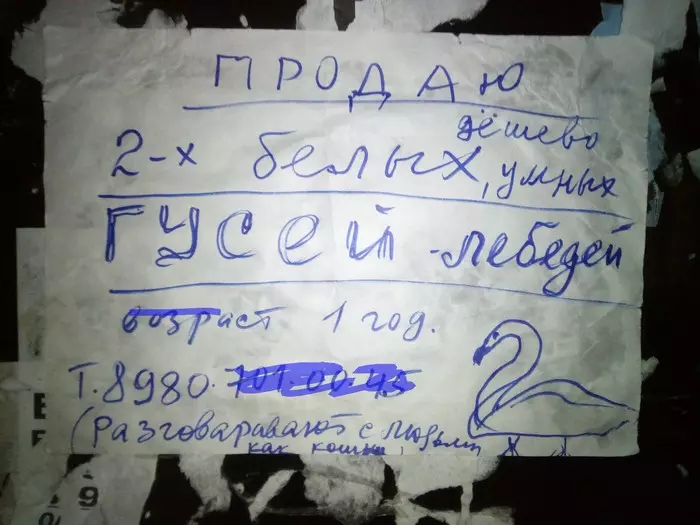 ПРОДАЮ
дёшево
2-х белых, умных
ГУСЕЙ-лебедей
возраст 1 год.
Т. 8980.
(Разговаравают с людьми
как кошки,